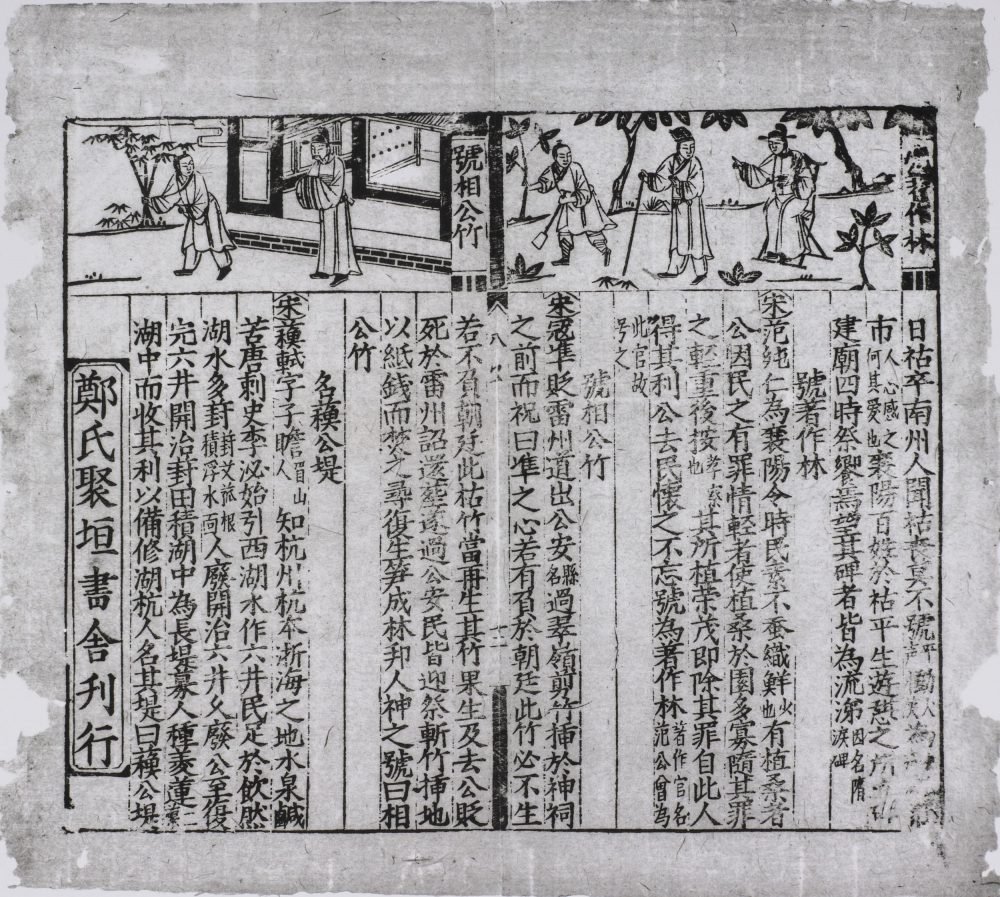 號著作林
號相公竹
日祜卒南州人聞祜喪莫不號
市人心感之何其愛也襄陽百姓於祜平生遊憇之所
建廟四時祭饗焉望其碑者皆為流涕因名隋淚碑
號著作林
宋范純仁為襄陽令時民素不蚕織鮮少也有植桑者
公因民之有罪情輕者使植桑於園多寡隨其罪
之輕重後按考察也其所植荣茂即除其罪自此人
得其利公去民懷之不忘號為著作林著作官名范公曾為
此官故号之
號相公竹
宋冦準貶雷州道出公安縣名過翠嶺剪竹挿於神祠
之前而祝曰准之心若有負於朝廷此竹必不生
若不負朝廷此枯竹當再生其竹果生及去公貶
死於雷州詔還葬道過公安民皆迎祭斬竹挿地
以紙錢而焚之尋復生笋成林邦人神之號曰相
公竹
名蘓公堤
宋蘓軾字子瞻眉山人知杭州杭本浙海之地水泉鹹
苦唐刺史李泌始引西湖水作六井民足於飲然
湖水多封封艾菰根積浮水面人廢開治六井乆廢公至復
完六井開治封田積湖中為長堤募人種麥蓮
湖中而收其利以備修湖杭人名其堤曰蘓公堤
鄭氏聚垣書舍刊行
八